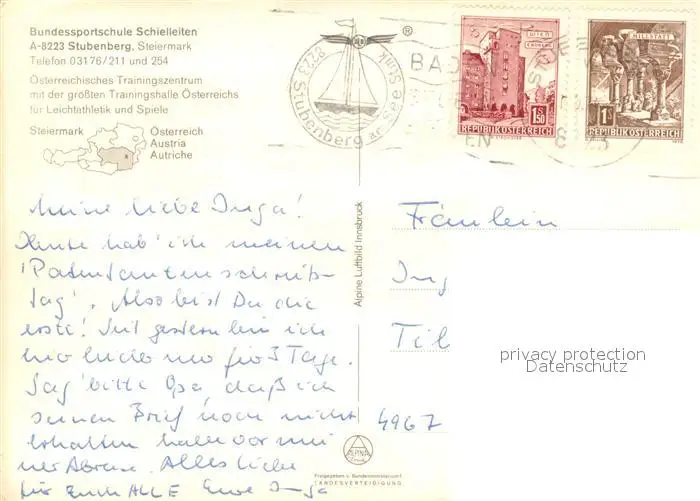 Bundessportschule Schielleiten
A-8223 Stubenberg, Steiermark
Telefon 03176/211 und 254
Österreichisches Trainingszentrum
mit der größten Trainingshalle Österreichs
für Leichtathletik und Spiele
Steiermark
Österreich
Austria
Autriche
8223 Stubenberg am See Stmk
®
WIEN
ERDBERG
1.50
S
REPUBLIK ÖSTERREICH
MILLSTATT
1S
REPUBLIK ÖSTERREICH
BAD
EN
Meine liebe Inga!
Heute hab' ich meinen
'Patentantenschreib-
tag'. Also bist Du die
erste! Seit gestern bin ich
hier nur für 3 Tage.
Sag' bitte Opa daß ich
seinen Brief noch nicht
erhalten habe vor mei
ner Abreise. Alles Liebe
für Euch ALLE Eure Inga
Alpine Luftbild Innsbruck
Fräulein
Ing
Til
4967
privacy protection
Datenschutz
ALPINA
Freigegeben v. Bundesministerium f.
LANDESVERTEIDIGUNG